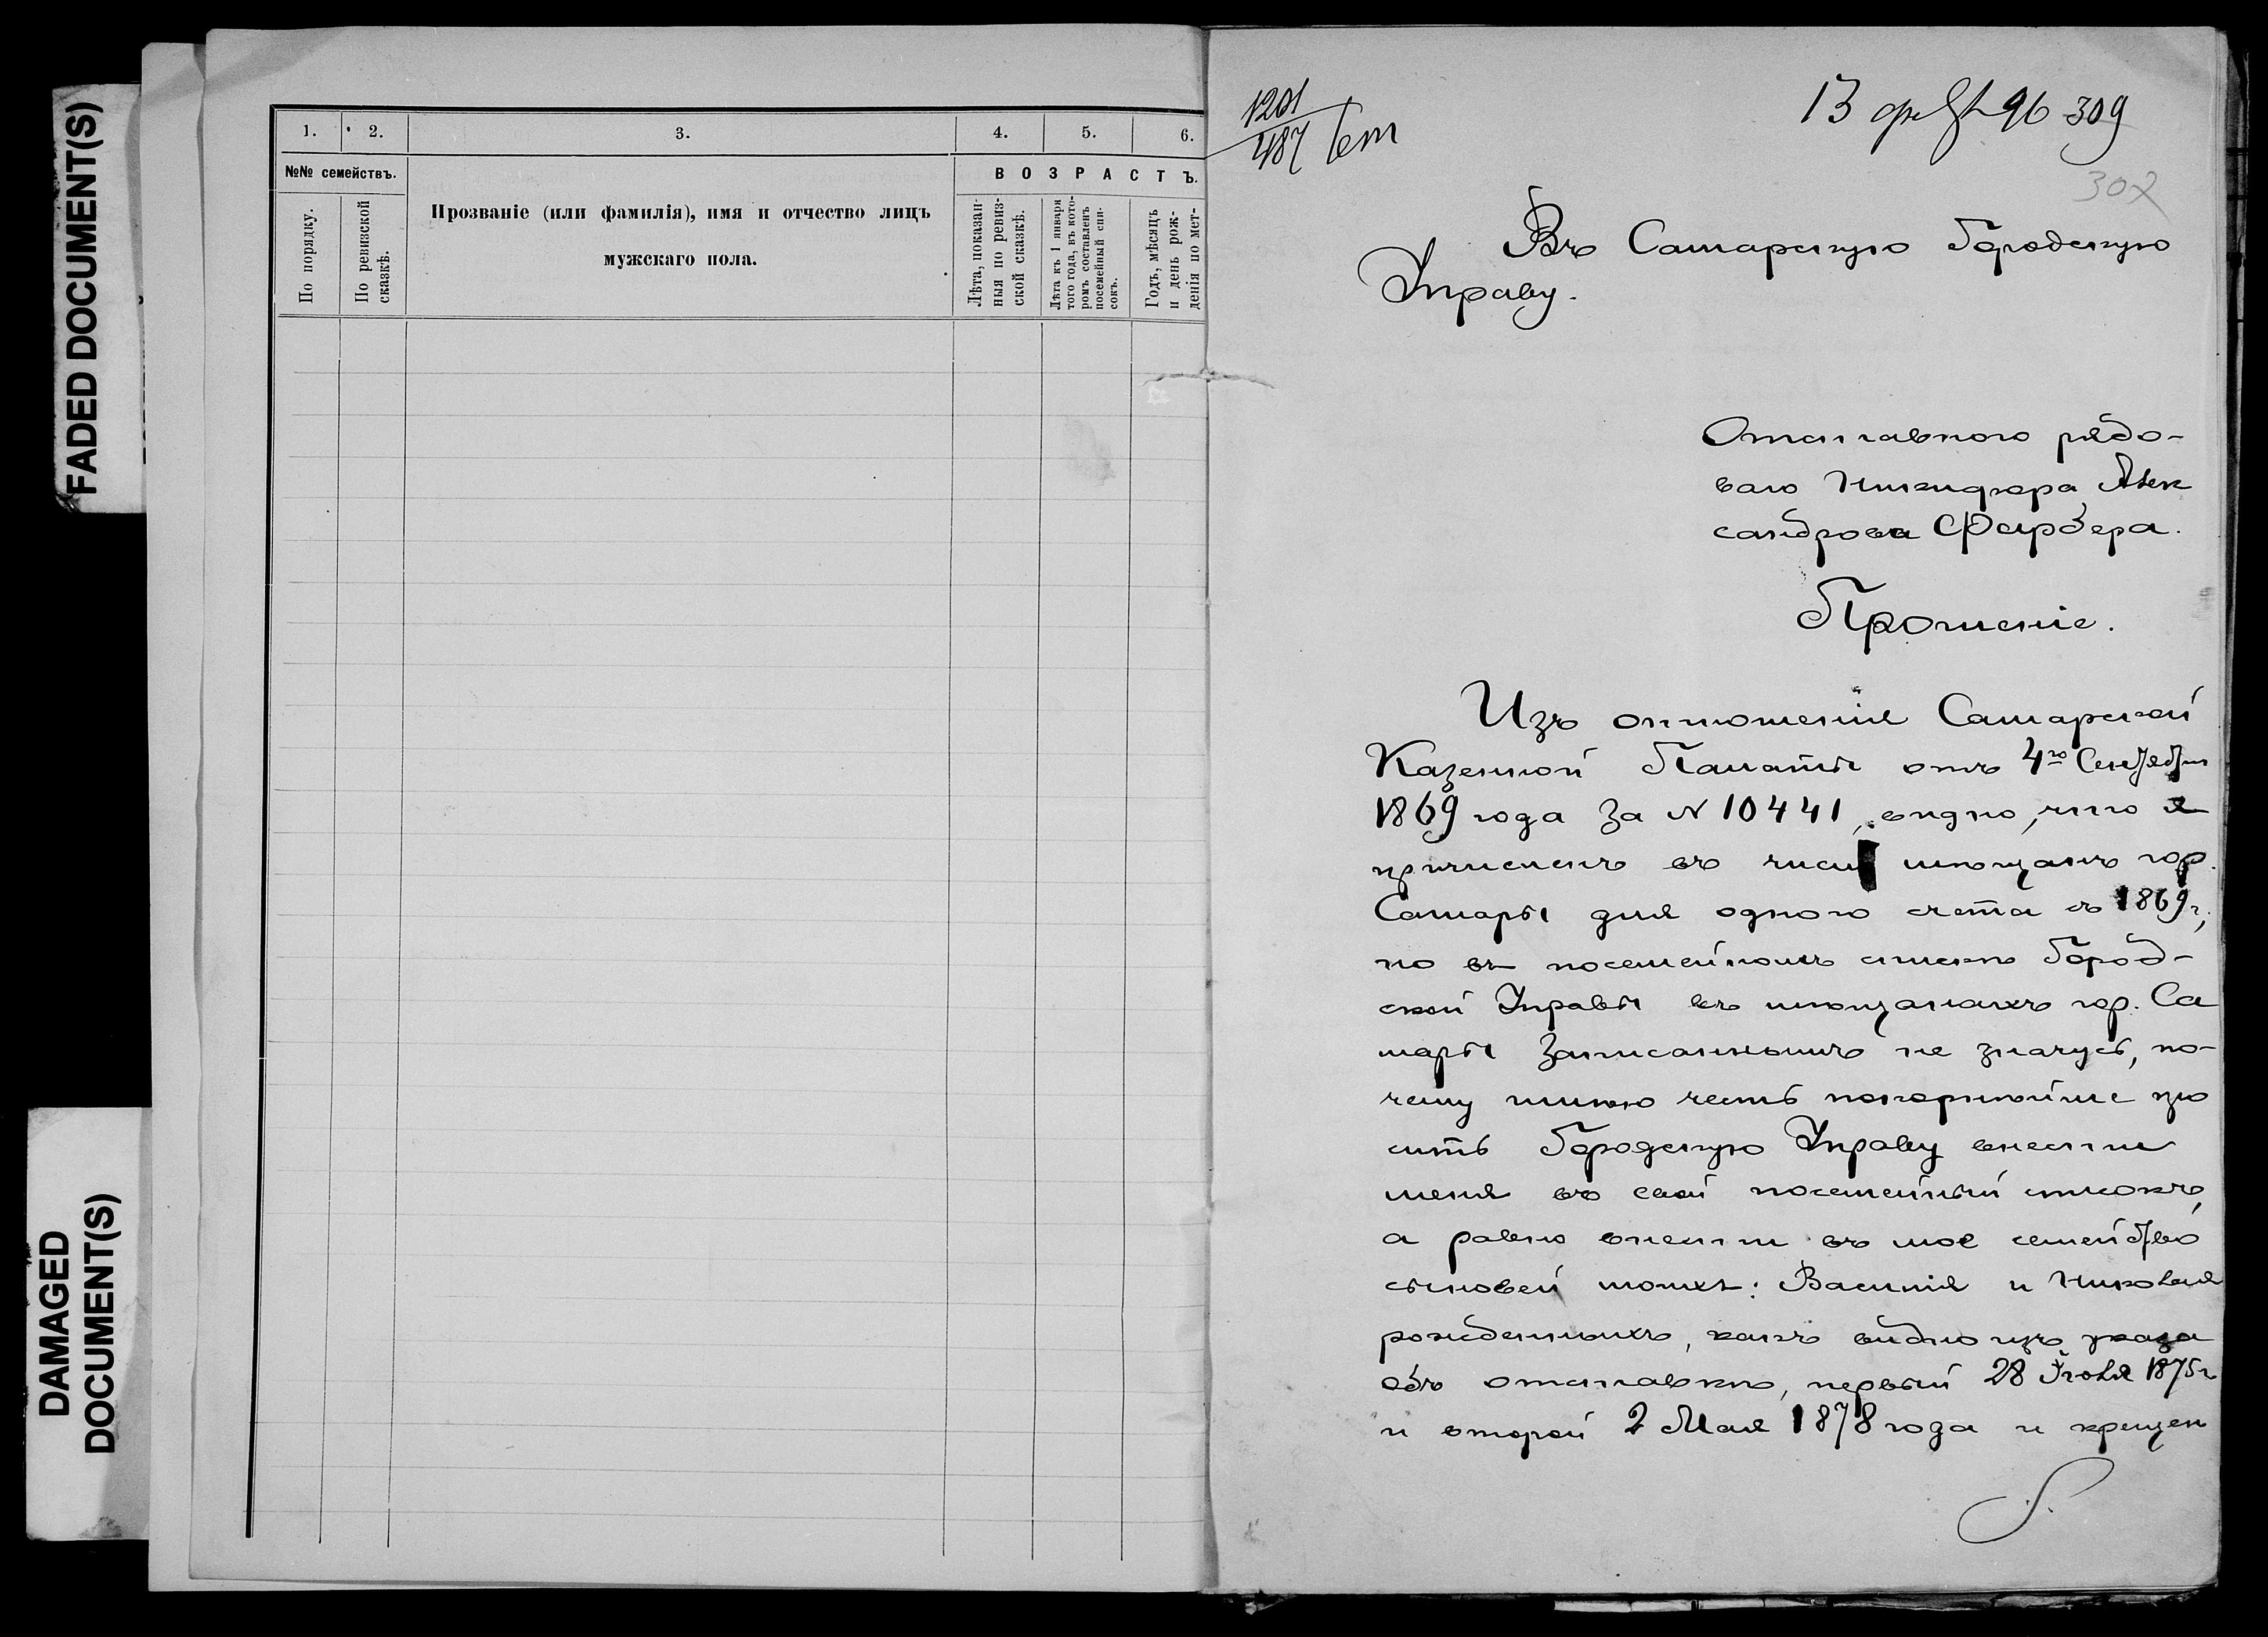 FADED DOCUMENT(S)
DAMAGED
DOCUMENT(S)
1. 2. 3. 4. 5. 6.
№№ семействъ.
По порядку.
По ревизской
сказкѣ.
Прозваніе (или фамилія), имя и отчество лицъ
мужскаго пола.
ВОЗРАСТЪ.
Лѣта, показан-
ныя по ревиз-
ской сказкѣ.
Лѣта къ 1 января
того года, въ кото-
ромъ составленъ
посемейный спи-
сокъ.
Годъ, мѣсяцъ
и день рож-
денія по мет-
1201
487
13 февр 96 309
307
Въ Самарскую Городскую
Управу.
Отставного рядо-
ваго Никифора Алек
сандрова Фарбера.
Прошеніе.
Изъ отношенія Самарской
Казенной Палаты отъ 4го Сентября
1869 года за N 10441, видно, что я
причисленъ въ число мѣщанъ гор.
Самары для одного счета съ 1869 г,
но въ посемейномъ спискѣ Город-
ской Управы въ мѣщанахъ гор. Са
мары записаннымъ не значусь, по-
чему имѣю честь покорнѣйше про
сить Городскую Управу внести
меня въ свой посемейный списокъ,
а равно внести въ мое семейство
сыновей моихъ: Василія и Николая
рожденныхъ, какъ видно изъ указа
объ отставкѣ, первый 28 Іюля 1875 г
и второй 2 Мая 1878 года и крещен